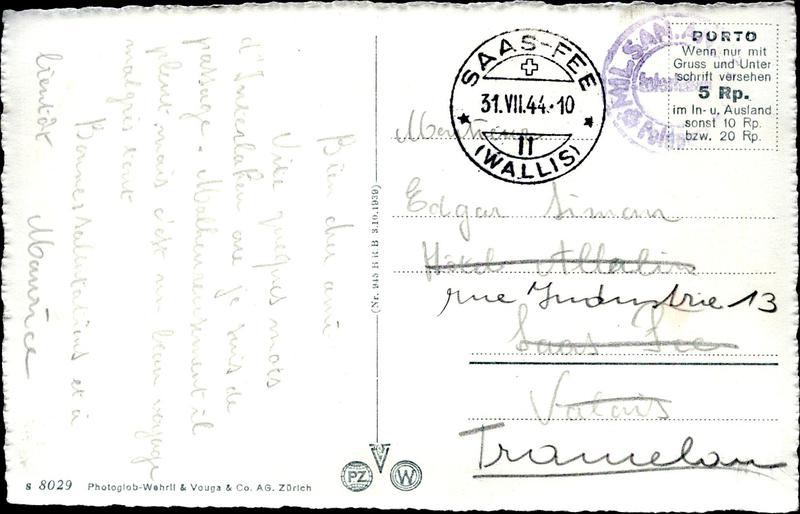 Bien cher ami
Vite quelques mots
d'Interlaken ou je suis de
passage. Malheureusement il
pleut mais c'est un beau voyage
malgré tout
Bonnes salutations et à
bientôt
Maurice
SAAS-FEE
31.VII.44.-10
11
(WALLIS)
MIL.SAN.
PORTO
Wenn nur mit
Gruss und Unter
schrift versehen
5 Rp.
im In- u, Ausland
sonst 10 Rp.
bzw. 20 Rp.
Monsieur
Edgar Simon
Hôtel Allalin
rue Industrie 13
Saas Fee
Valais
Tramelan
(Nr. 945 B R B 3.10.1939)
S 8029 Photoglob-Wehrli & Vouga & Co. AG. Zürich
PZ
V
W